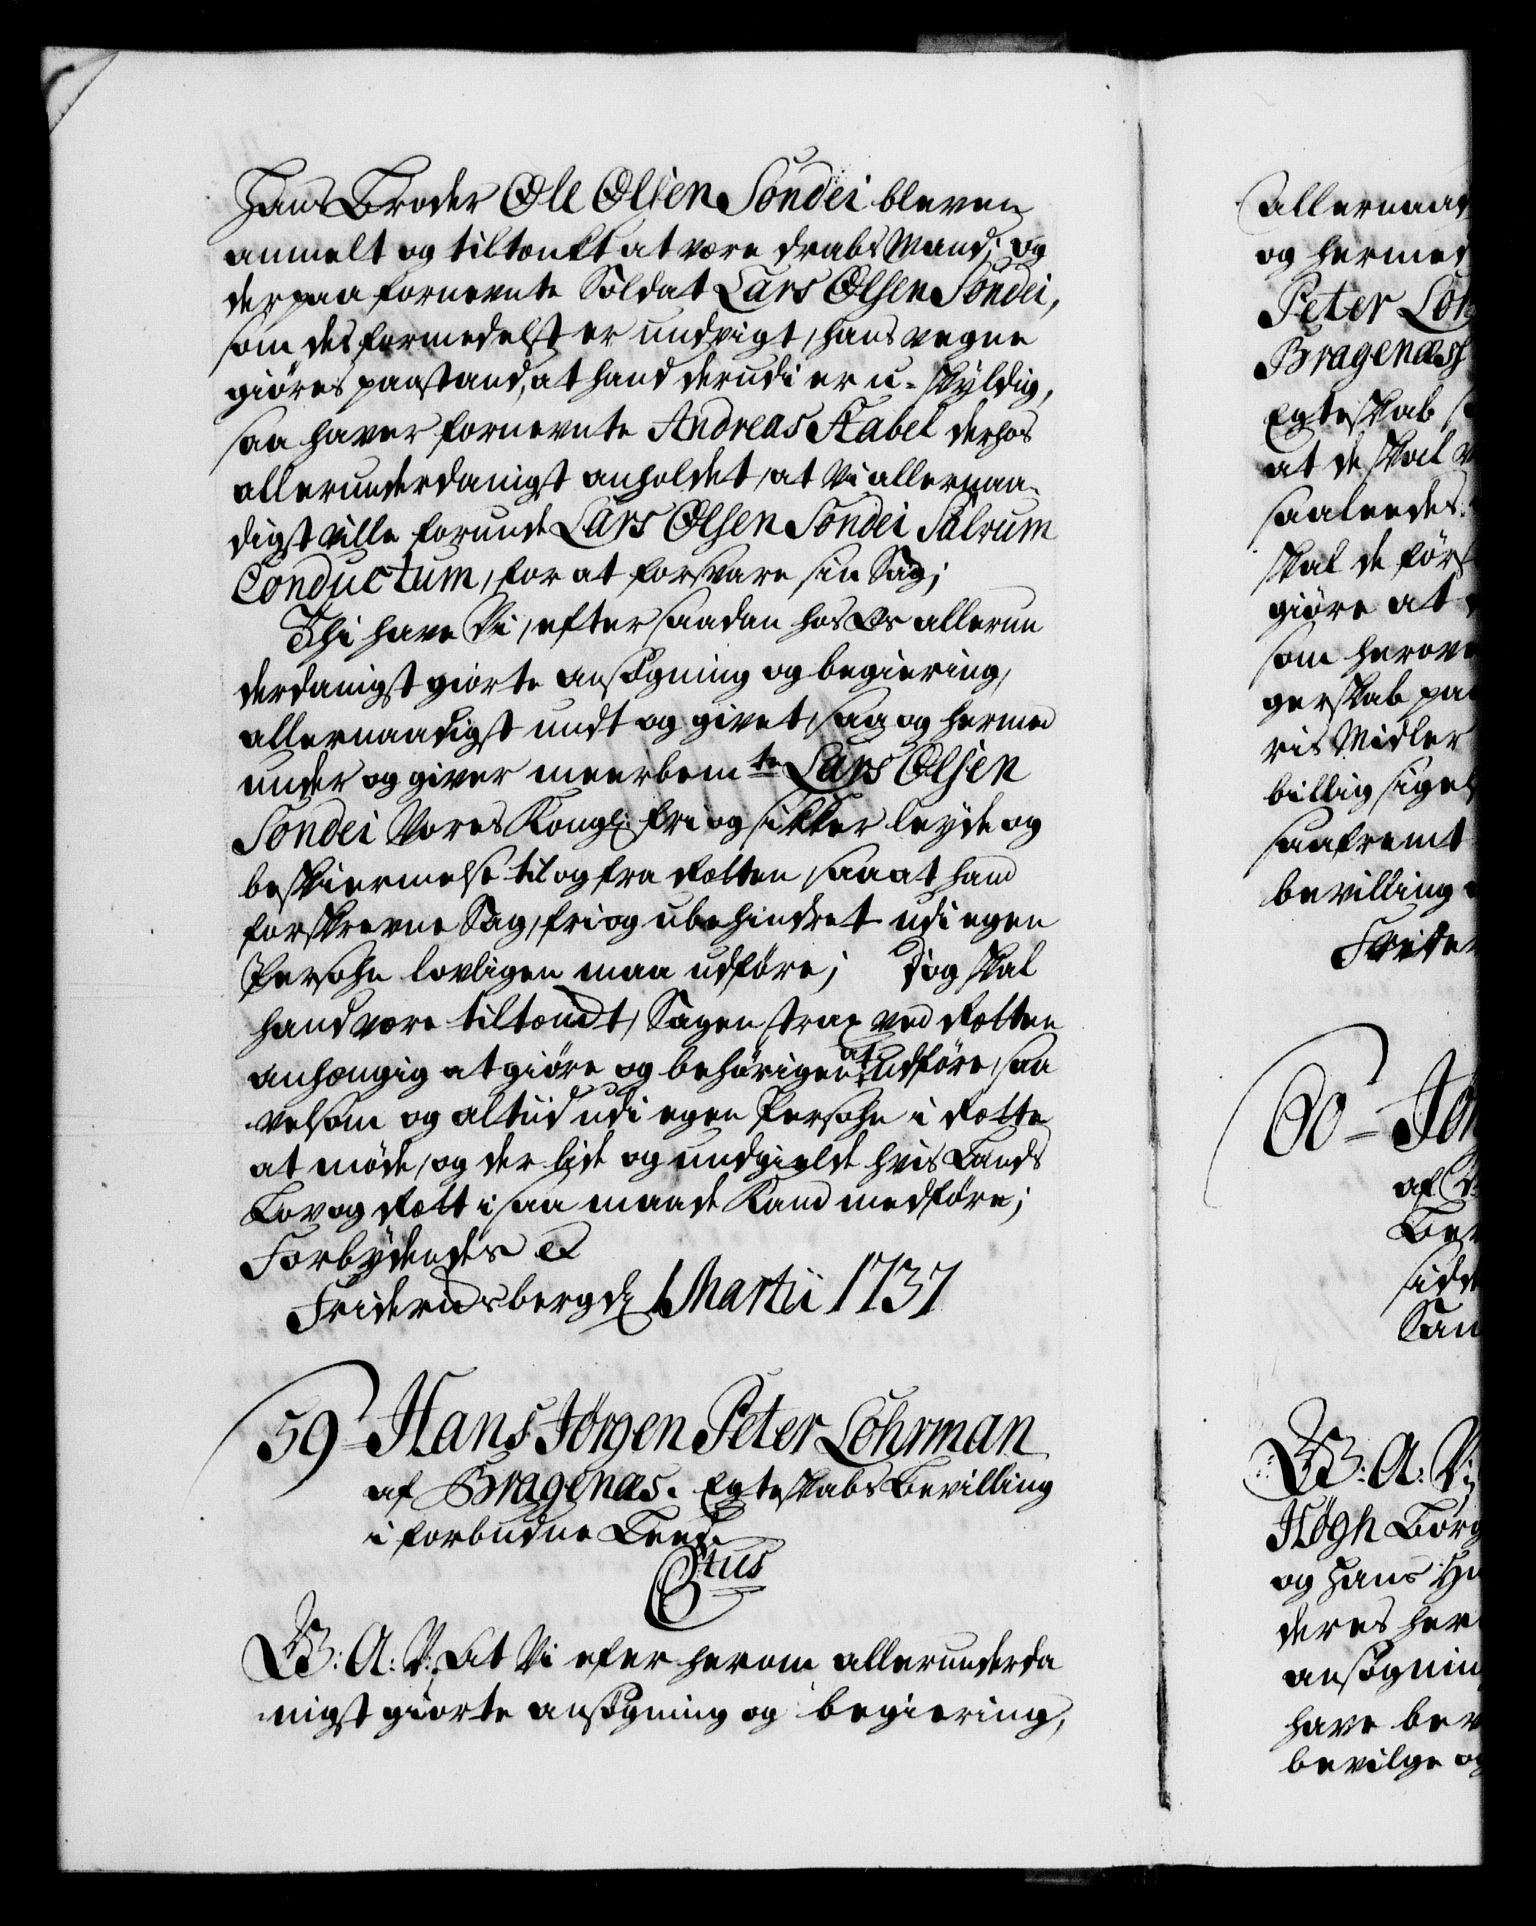 Hans Broder Ole Olsen Sondei bleven
anmelt og tiltænkt at være drabs Mand; og
derpaa fornevnte Soldat Lars Olsen Sondei,
som desformedelst er undvigt, hans vegne
giøres paastand, at hand derudi er u-skyldig,
saa haver fornevnte Andreas Kabel derhos
allerunderdanigst anholdet, at Vi allernaa-
digst ville forunde Lars Olsen Sondei Salvum
Conductum, for at forsvare sin Sag;
Thi have Vi, efter saadan hos Os allerun
derdanigst giorte ansøgning og begiering,
allernaadigst undt og givet, saa og hermed
under og giver meerbemte Lars Olsen
Sondei Vores Kongl: fri og sikker leyde og
beskiermelse til og fra Rætten, saa at hand
forskrevne Sag, fri og ubehindret udi egen
Persohn lovligen maa udføre; Dog skal
hand være tiltænckt, Sagen strax ved Rætten
anhængig at giøre og behørigen at udføre, saa
velsom og altiid udi egen Persohn i Rette
at møde, og der lide og undgielde hvis Lands
Lov og Rætt i saa maade Kand medføre;
Forbydendes &
Friderichsberg d. 1 Martii 1737
59 Hans Jørgen Peter Lohrman
af Bragenæs. Egteskabs Bevilling
i forbudne Leed.
Gtus
G: A: V: At Vi efter herom allerunderda
nigst giorte ansøgning og begiering,
allernaad
og hermed
Peter Loh
Bragenæs
Egteskab
at de skal
saaleedes
skal de førs
giøre at
som herove
gerskab paa
ris Midler
billig sigel
saafremt
bevilling
Frider
60 Joh
af
Ber
sidd
San
G: A: Vi
Høgh Borg
og Hans Hu
deres her
ansøgning
have bev
bevilge og